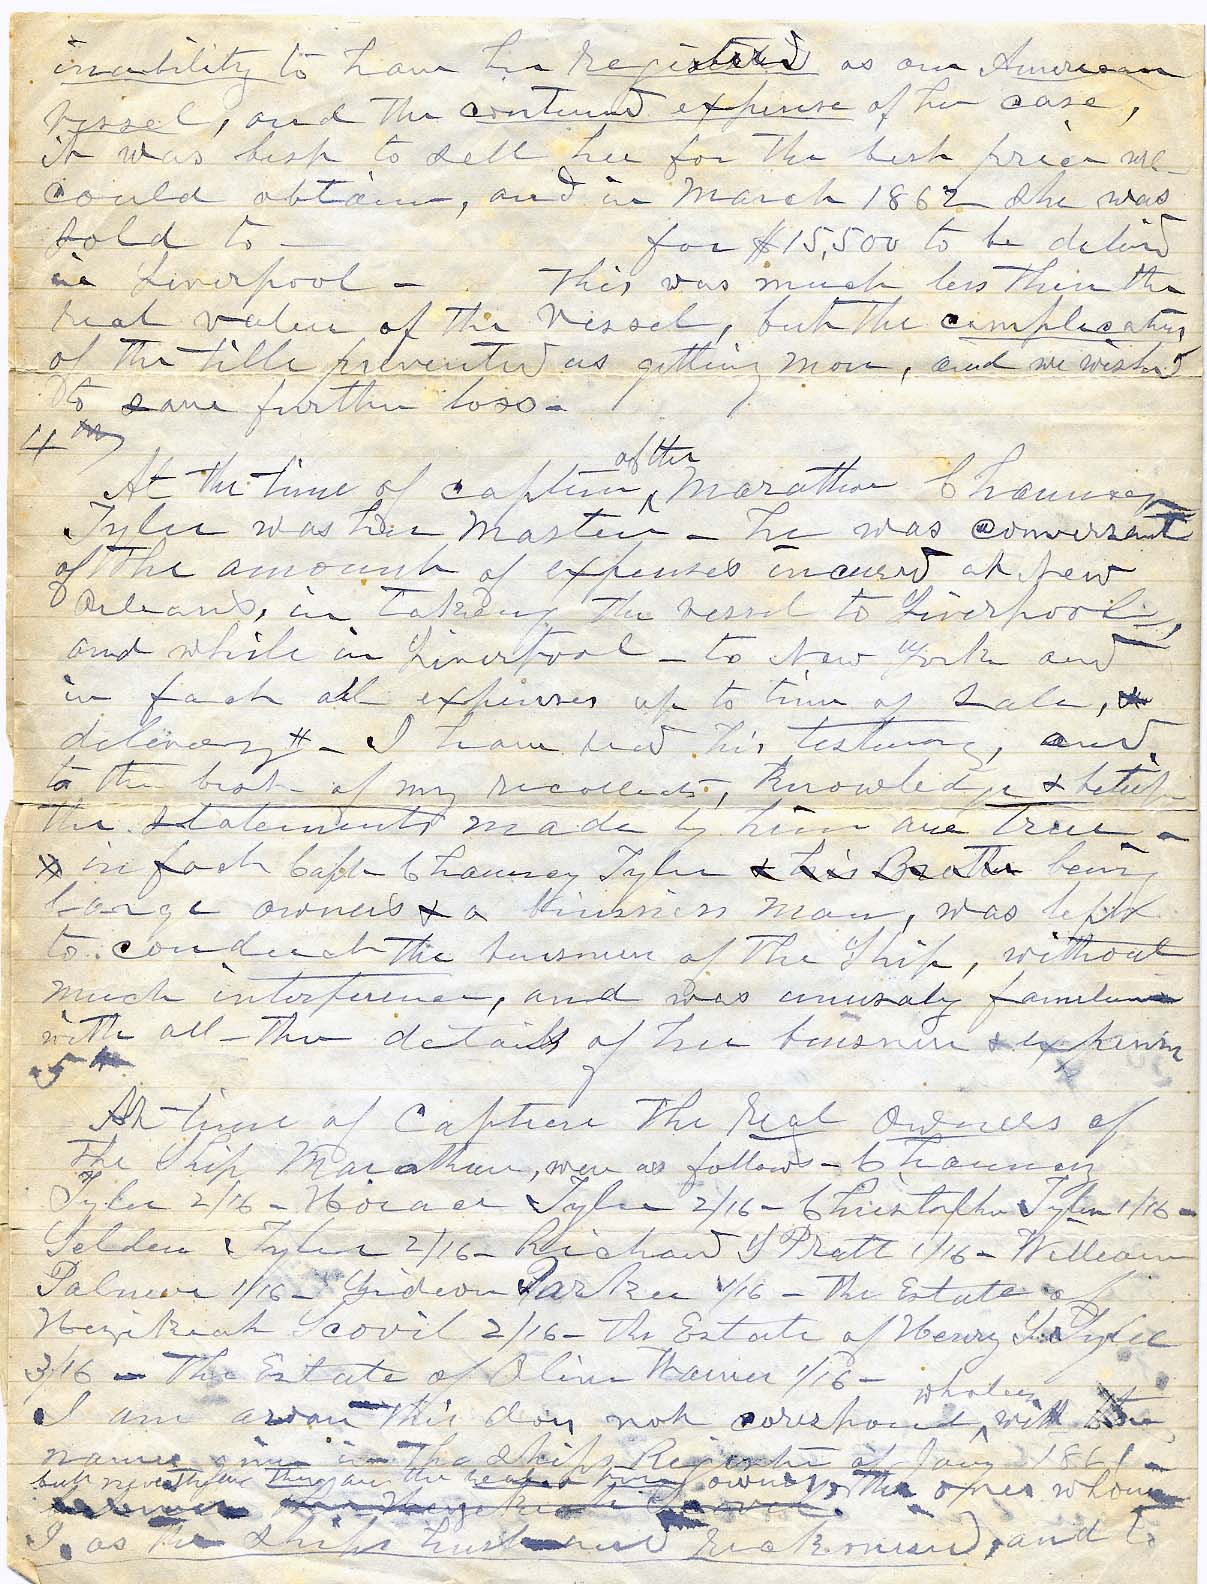 inability to have her registered as an American
vessel, and the continued expense of her case,
it was best to sell her for the best price we
could obtain, and in March 1862 she was
sold to — for $15,500 to be delivd
in Liverpool — This was much less then the
real value of the vessel, but the complications
of the title prevented us getting more, and we wished
to save further loss —
4th
At the time of capture of the Marathon Chauncey
Tyler was her Master — he was conversant
of the amount of expenses incured at New
Orleans, in takeing the vessel to Liverpool,
and while in Liverpool — to New York and
in fact all expenses up to time of sale, &
delivery # — I have read his testimony, and
to the best of my recollects, knowledge & belief
the statements made by him are true —
in fact Capt Chauncey Tyler & his Brother being
large owners & a business man, was left
to conduct the business of the Ship, without
much interference, and was unusaly familiar
with all the details of her business & expenses
5th
At time of Capture the real owners of
the Ship Marathon, were as follows — Chauncey
Tyler 2/16 — Horace Tyler 2/16 — Christopher Tyler 1/16 —
Selden Tyler 2/16 — Richard S Pratt 1/16 — William
Palmer 1/16 — Gideon Parker 1/16 — The Estate of
Hezekiah Scovil 2/16 — The Estate of Henry S Tyler
3/16 — The Estate of Oliver Warner 1/16 —
I am aware this don not correspond wholly, with the
names given in the Ships Register of Jany 1861 —
but nevertheless they are the real owners, the ones whom
I, as the ships husband reckonised, and to